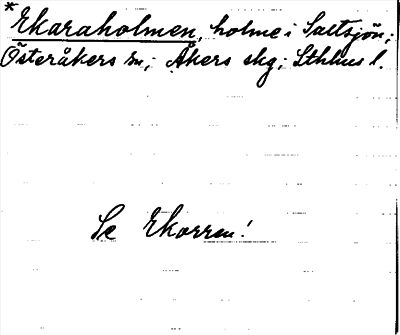 *Ekaraholmen, holme i Saltsjön;
Österåkers sn; Åkers skg; Sthlms l.
Se Ekorren!